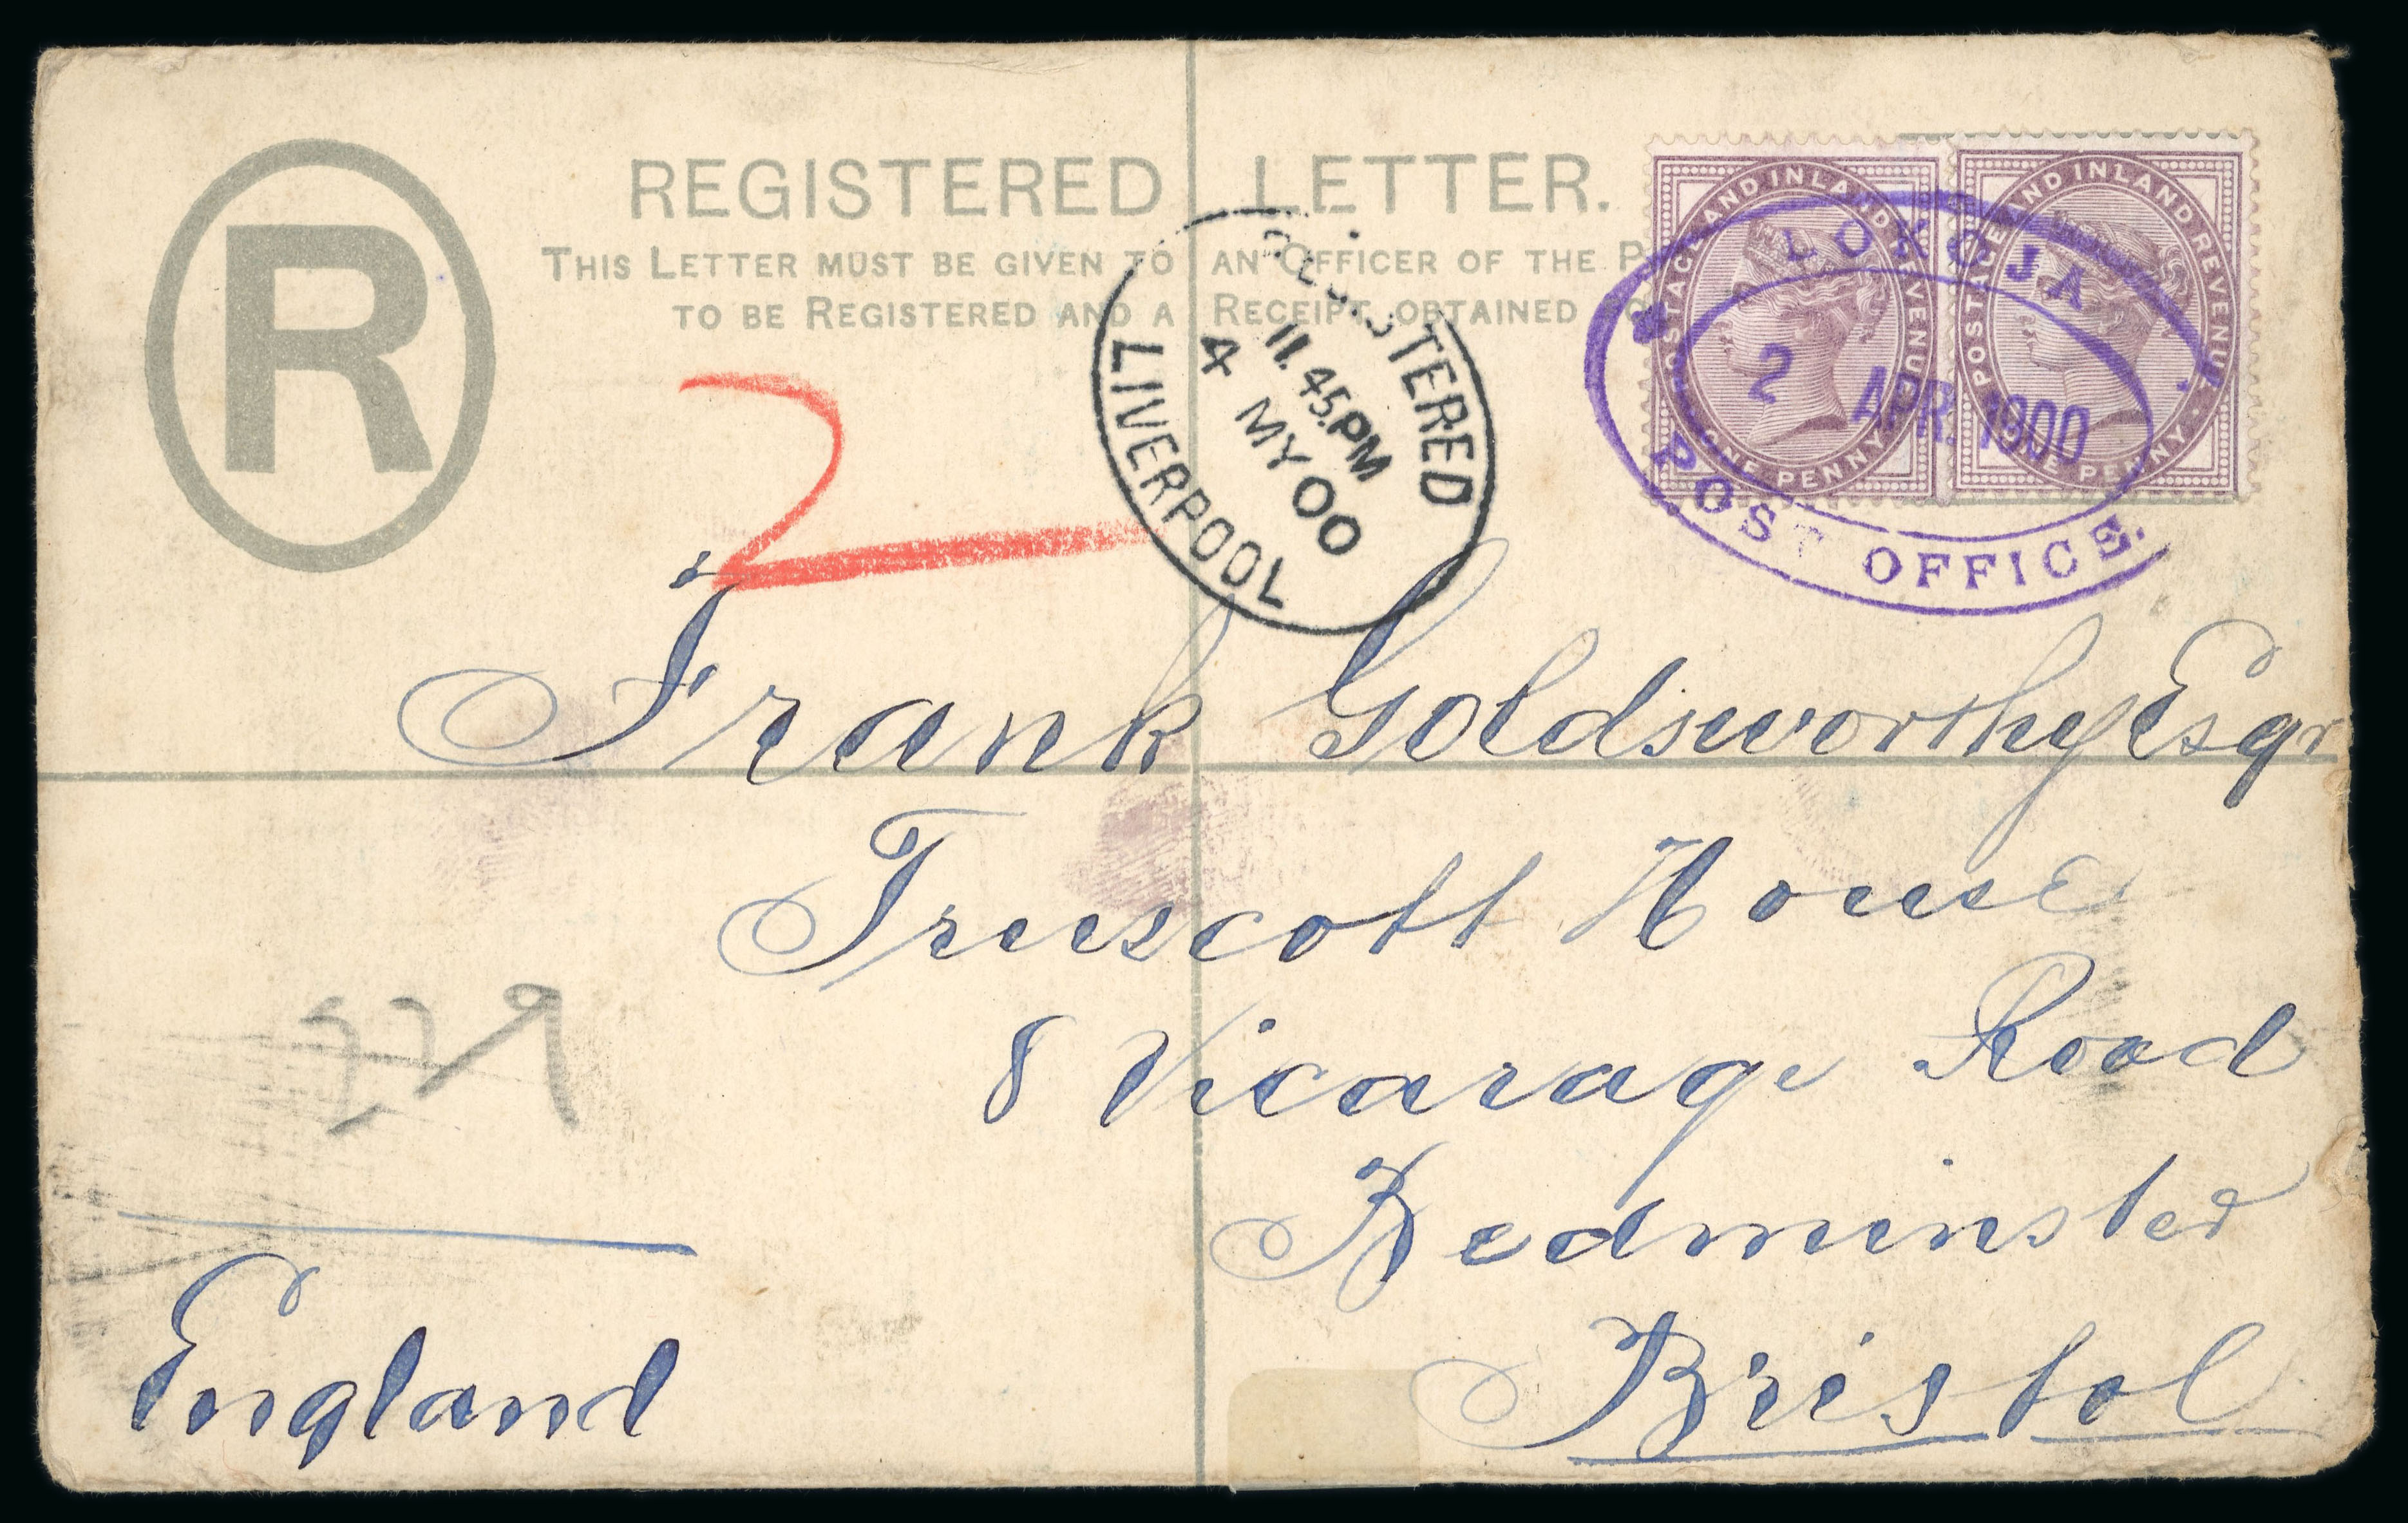 R
REGISTERED LETTER.
THIS LETTER MUST BE GIVEN TO AN OFFICER OF THE P
TO BE REGISTERED AND A RECEIPT OBTAINED
POSTAGE AND INLAND REVENUE
ONE PENNY
POSTAGE AND INLAND REVENUE
ONE PENNY
LOKOJA
2 APR. 1900
POST OFFICE.
REGISTERED
11.45PM
4 MY 00
LIVERPOOL
2
Frank Goldsworthy Esqr
Truscott House
8 Vicarage Road
Bedminster
Bristol
England